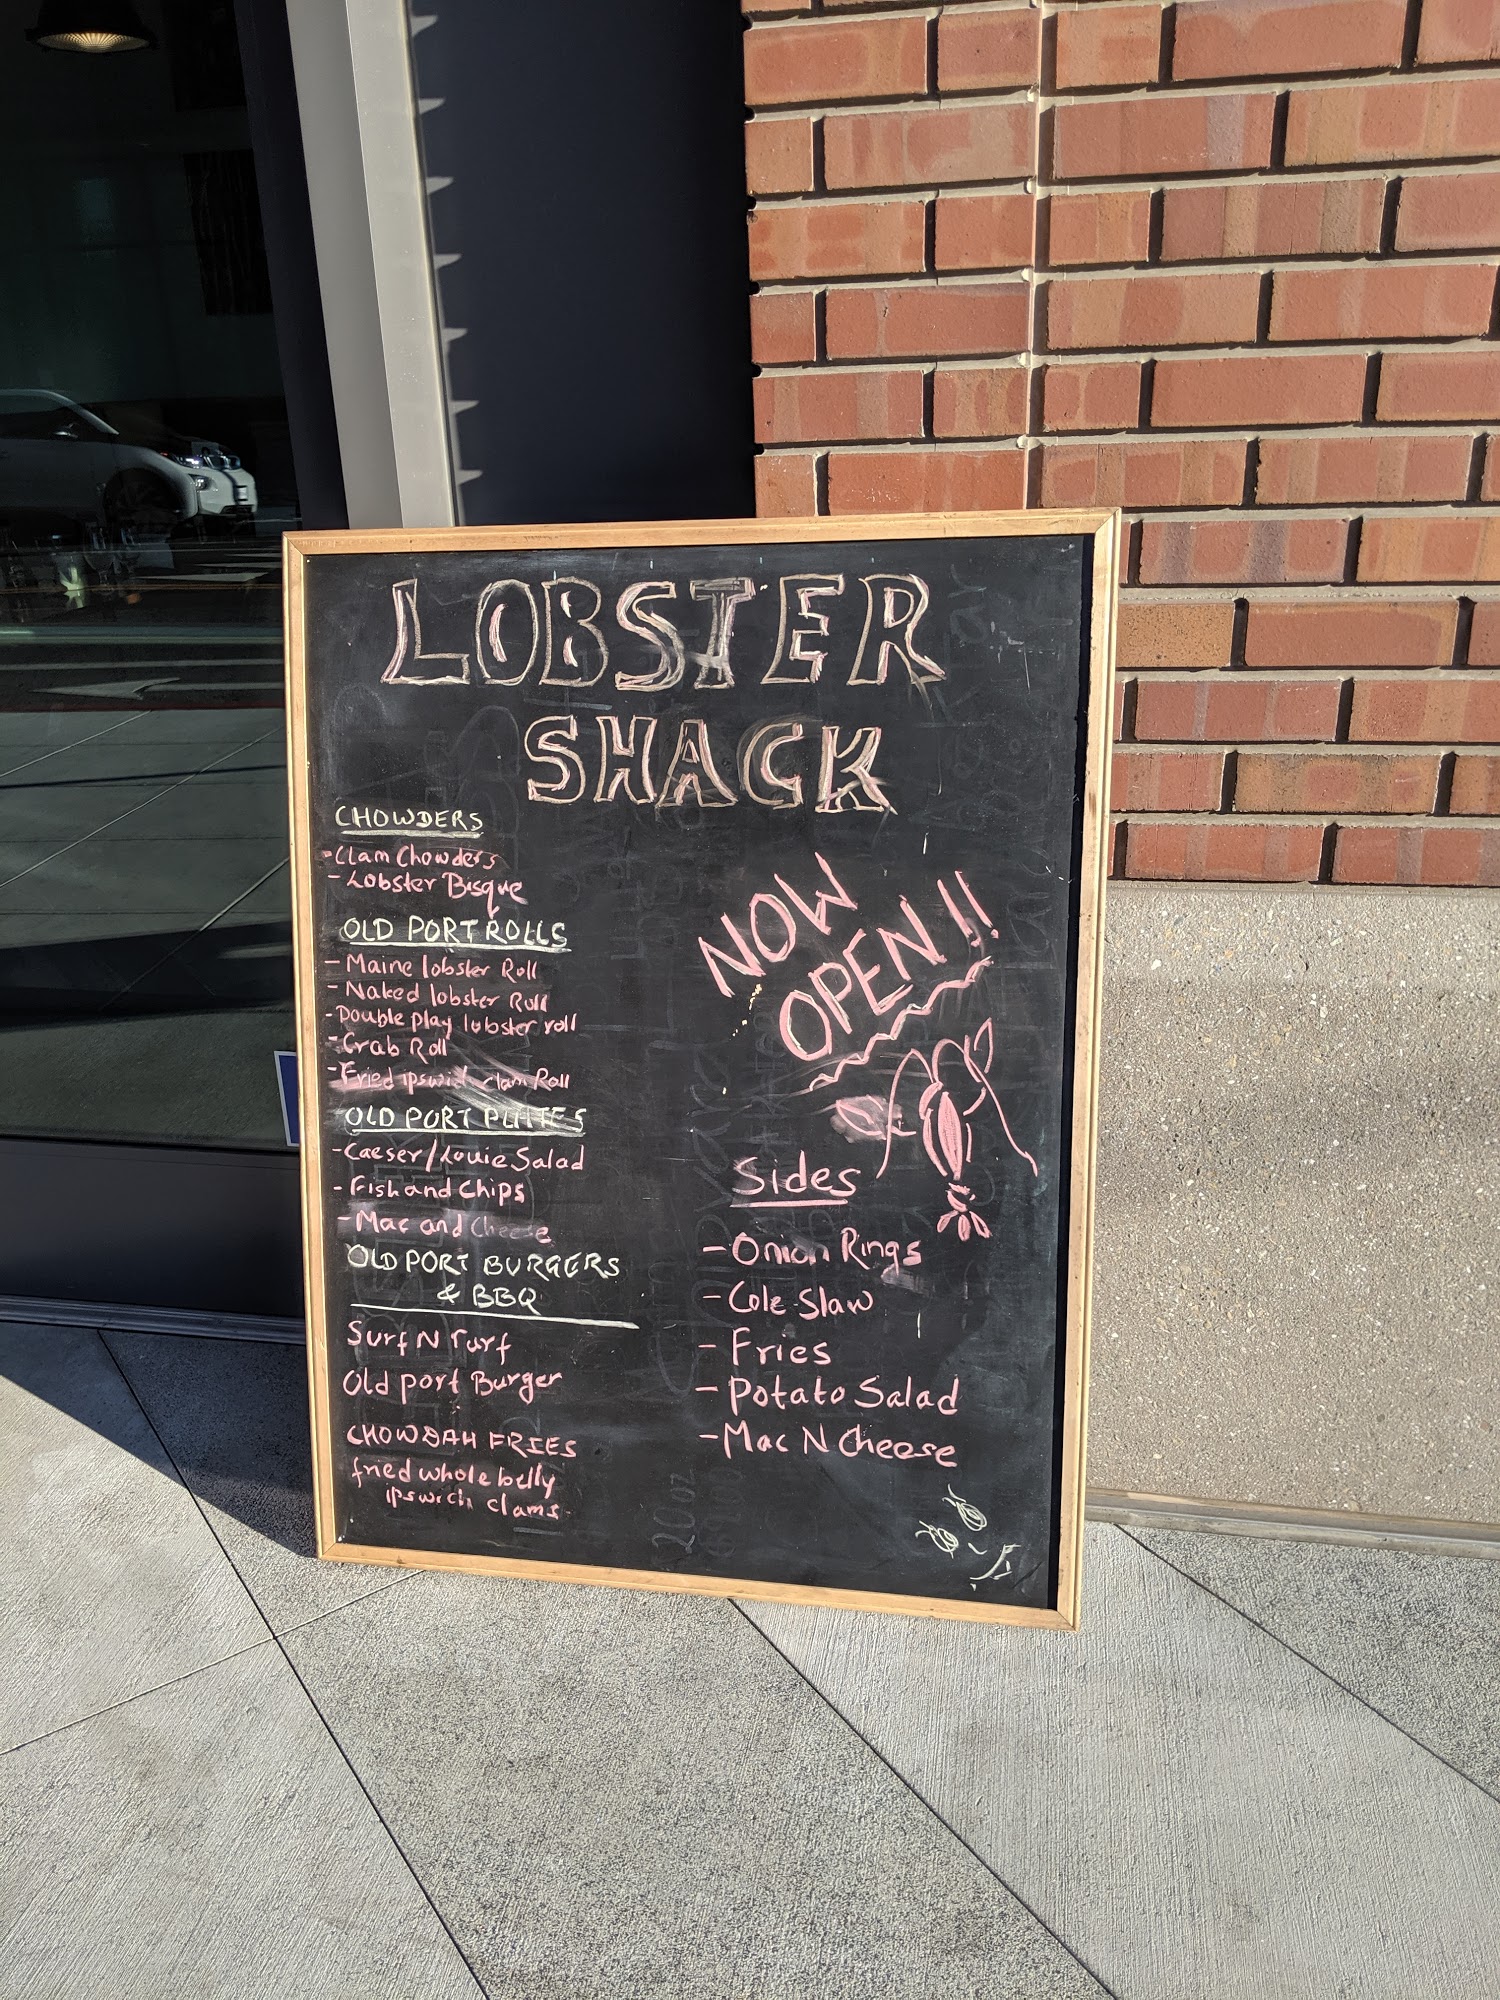 LOBSTER
SHACK
CHOWDERS
-Clam Chowders
-Lobster Bisque
OLD PORT ROLLS
-Maine lobster Roll
-Naked lobster Roll
-Double play lobster roll
-Crab Roll
-Fried ipswich clam Roll
OLD PORT PLATES
-Caeser/Louie Salad
-Fish and Chips
-Mac and Cheese
OLD PORT BURGERS
& BBQ
Surf N Turf
Old port Burger
CHOWDAH FRIES
fried whole belly
ipswich clams
NOW
OPEN!!
Sides
-Onion Rings
-Cole Slaw
-Fries
-Potato Salad
-Mac N Cheese